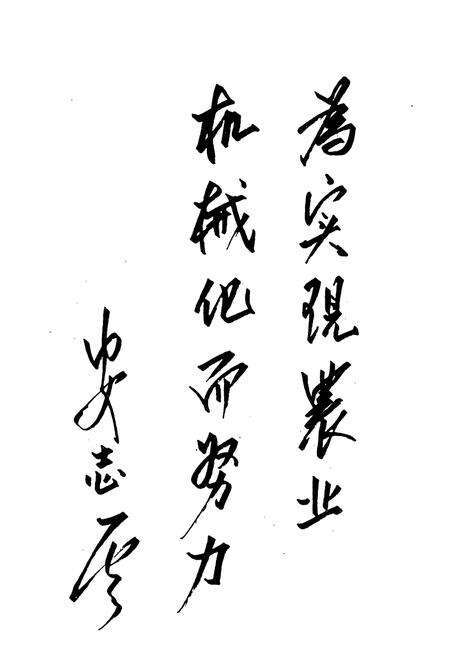 為实現農业
机械化而努力
志